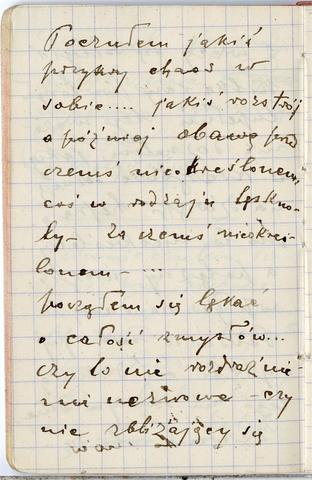 Poczułem jakiś
przykry chaos w
sobie.... jakiś rozstrój
a później obawę przed
czemś nieokreślonem
coś w rodzaju tęskno-
ty – za czemś nieokreś-
lonem – ...
począłem się lękać
o całość zmysłów...
czy to nie rozdraźnie-
nie nerwowe – czy
nie zbliżający się